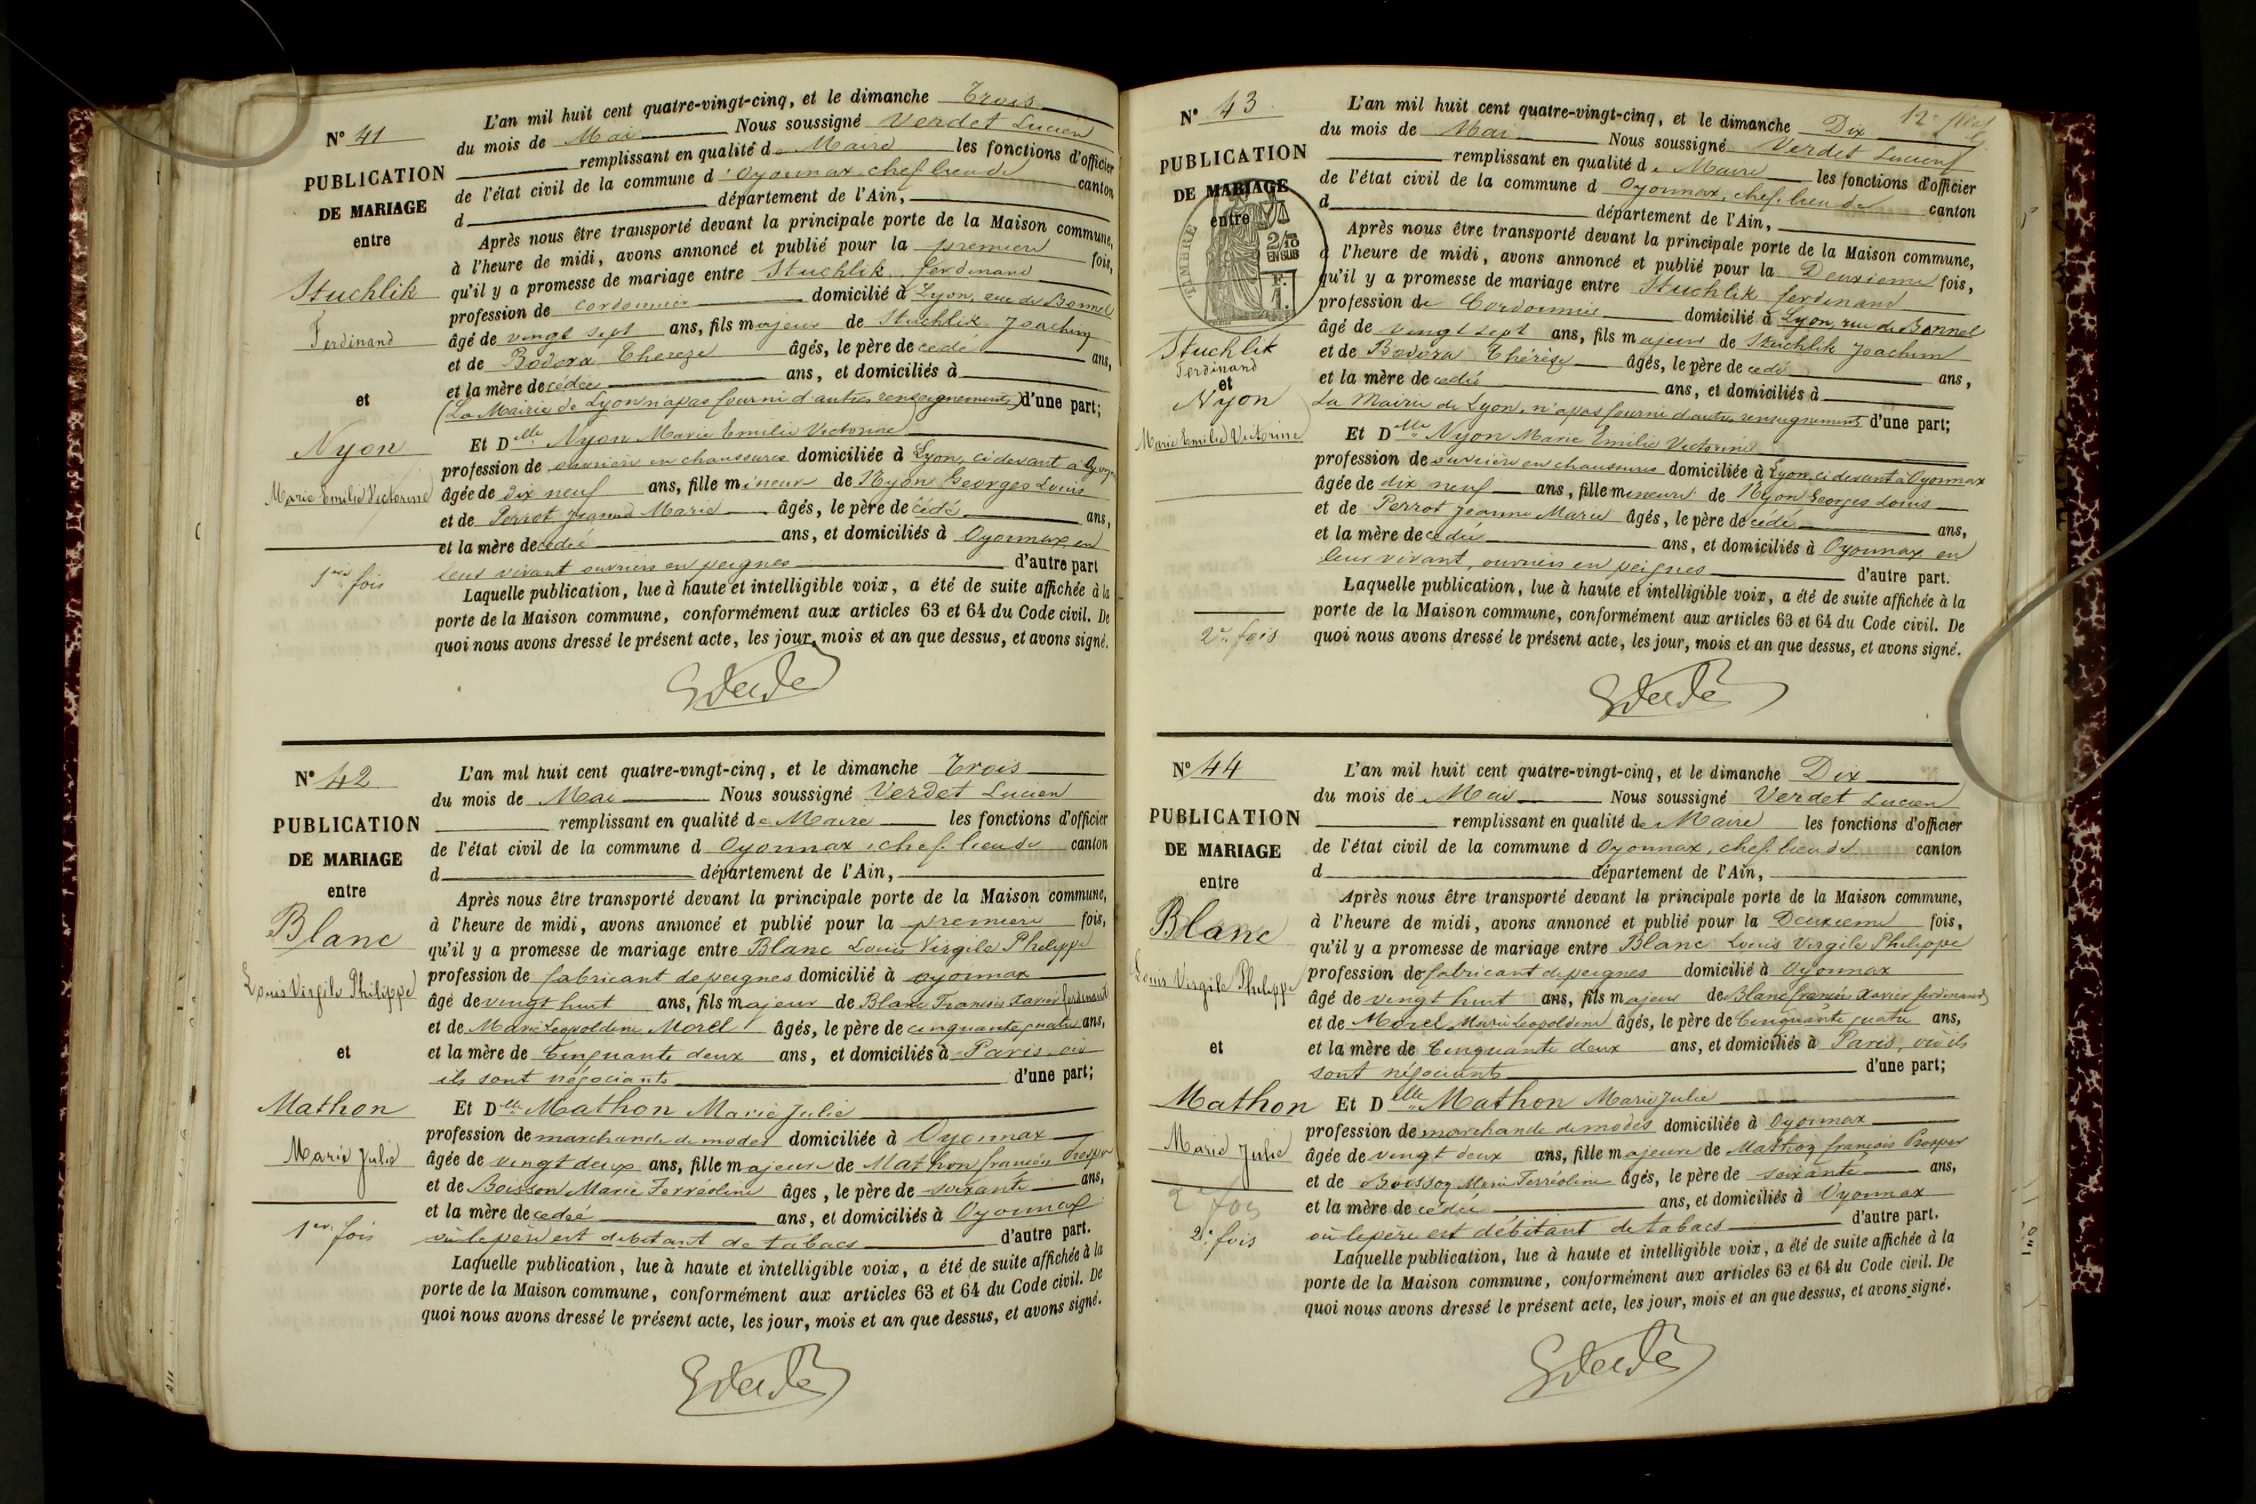 N° 41
PUBLICATION
DE MARIAGE
entre
Stuchlik
Ferdinand
et
Nyon
Marie Emilie Victorine
1ere fois
L'an mil huit cent quatre-vingt-cinq, et le dimanche Trois
du mois de Mai Nous soussigné Verdet Lucien
remplissant en qualité de Maire les fonctions d'officier
de l'état civil de la commune d'Oyonnax, chef lieu de canton
d département de l'Ain,
Après nous être transporté devant la principale porte de la Maison commune,
à l'heure de midi, avons annoncé et publié pour la premiere fois,
qu'il y a promesse de mariage entre Stuchlik ferdinand
profession de cordonnier domicilié à Lyon, rue de Bonnel
âgé de vingt sept ans, fils majeur de Stuchlik Joachim
et de Bodora Thereze âgés, le père de cédé ans,
et la mère de cédée ans, et domiciliés à
(La Mairie de Lyon n'a pas fourni d'autres renseignements) d'une part;
Et Delle Nyon Marie Emilie Victorine
profession de ouvrière en chaussures domiciliée à Lyon, ci devant à Oyonnax
âgée de dix neuf ans, fille mineure de Nyon Georges Louis
et de Perrot Jeanne Marie âgés, le père de cédé ans,
et la mère de cédée ans, et domiciliés à Oyonnax, en
leur vivant ouvriers en peignes d'autre part
Laquelle publication, lue à haute et intelligible voix, a été de suite affichée à la
porte de la Maison commune, conformément aux articles 63 et 64 du Code civil. De
quoi nous avons dressé le présent acte, les jour, mois et an que dessus, et avons signé.
N° 42
PUBLICATION
DE MARIAGE
entre
Blanc
Louis Virgile Philippe
et
Mathon
Marie Julie
1ere fois
L'an mil huit cent quatre-vingt-cinq, et le dimanche Trois
du mois de Mai Nous soussigné Verdet Lucien
remplissant en qualité de Maire les fonctions d'officier
de l'état civil de la commune d Oyonnax, chef lieu de canton
d département de l'Ain,
Après nous être transporté devant la principale porte de la Maison commune,
à l'heure de midi, avons annoncé et publié pour la premiere fois,
qu'il y a promesse de mariage entre Blanc Louis Virgile Philippe
profession de fabricant de peignes domicilié à oyonnax
âgé de vingt huit ans, fils majeur de Blanc Francois Xavier ferdinand
et de Marie Leopoldine Morel âgés, le père de cinquante quatre ans,
et la mère de Cinquante deux ans, et domiciliés à Paris, où
ils sont négociants d'une part;
Et Delle Mathon Marie Julie
profession de marchande de modes domiciliée à Oyonnax
âgée de vingt deux ans, fille majeure de Mathon françois Prosper
et de Boisson Marie Ferréoline âges, le père de soixante ans,
et la mère de cédée ans, et domiciliés à Oyonnax
où le père est debitant de tabacs d'autre part.
Laquelle publication, lue à haute et intelligible voix, a été de suite affichée à la
porte de la Maison commune, conformément aux articles 63 et 64 du Code civil. De
quoi nous avons dressé le présent acte, les jour, mois et an que dessus, et avons signé.
N° 43
PUBLICATION
DE MARIAGE
entre
TIMBRE
2/10
EN SUS
F.
1.
Stuchlik
Ferdinand
et
Nyon
Marie Emilie Victorine
2e fois
L'an mil huit cent quatre-vingt-cinq, et le dimanche Dix
du mois de Mai Nous soussigné Verdet Lucien
remplissant en qualité de Maire les fonctions d'officier
de l'état civil de la commune d Oyonnax, chef lieu de canton
d département de l'Ain,
Après nous être transporté devant la principale porte de la Maison commune,
à l'heure de midi, avons annoncé et publié pour la Deuxieme fois,
qu'il y a promesse de mariage entre Stuchlik ferdinand
profession de Cordonnier domicilié à Lyon, rue de Bonnel
âgé de vingt sept ans, fils majeur de Stuchlik Joachim
et de Bodora Thérèse âgés, le père de cédé ans,
et la mère de cédée ans, et domiciliés à
La Mairie de Lyon, n'a pas fourni d'autres renseignements d'une part;
Et Delle Nyon Marie Emilie Victorine
profession de ouvrière en chaussures domiciliée à Lyon, ci devant à Oyonnax
âgée de dix neuf ans, fille mineure de Nyon Georges Louis
et de Perrot Jeanne Marie âgés, le père de cédé ans,
et la mère de cédée ans, et domiciliés à Oyonnax, en
leur vivant, ouvriers en peignes d'autre part.
Laquelle publication, lue à haute et intelligible voix, a été de suite affichée à la
porte de la Maison commune, conformément aux articles 63 et 64 du Code civil. De
quoi nous avons dressé le présent acte, les jour, mois et an que dessus, et avons signé.
N° 44
PUBLICATION
DE MARIAGE
entre
Blanc
Louis Virgile Philippe
et
Mathon
Marie Julie
2e fois
2e fois
L'an mil huit cent quatre-vingt-cinq, et le dimanche Dix
du mois de Mai Nous soussigné Verdet Lucien
remplissant en qualité de Maire les fonctions d'officier
de l'état civil de la commune d Oyonnax, chef lieu de canton
d département de l'Ain,
Après nous être transporté devant la principale porte de la Maison commune,
à l'heure de midi, avons annoncé et publié pour la Deuxieme fois,
qu'il y a promesse de mariage entre Blanc Louis Virgile Philippe
profession de fabricant de peignes domicilié à Oyonnax
âgé de vingt huit ans, fils majeur de Blanc françois Xavier ferdinand
et de Morel Marie Leopoldine âgés, le père de Cinquante quatre ans,
et la mère de Cinquante deux ans, et domiciliés à Paris, où ils
sont négociants d'une part;
Et Delle Mathon Marie Julie
profession de marchande de modes domiciliée à Oyonnax
âgée de vingt deux ans, fille majeure de Mathon françois Prosper
et de Boisson Marie Ferréoline âgés, le père de soixante ans,
et la mère de cédée ans, et domiciliés à Oyonnax
où le père est débitant de tabacs d'autre part.
Laquelle publication, lue à haute et intelligible voix, a été de suite affichée à la
porte de la Maison commune, conformément aux articles 63 et 64 du Code civil. De
quoi nous avons dressé le présent acte, les jour, mois et an que dessus, et avons signé.